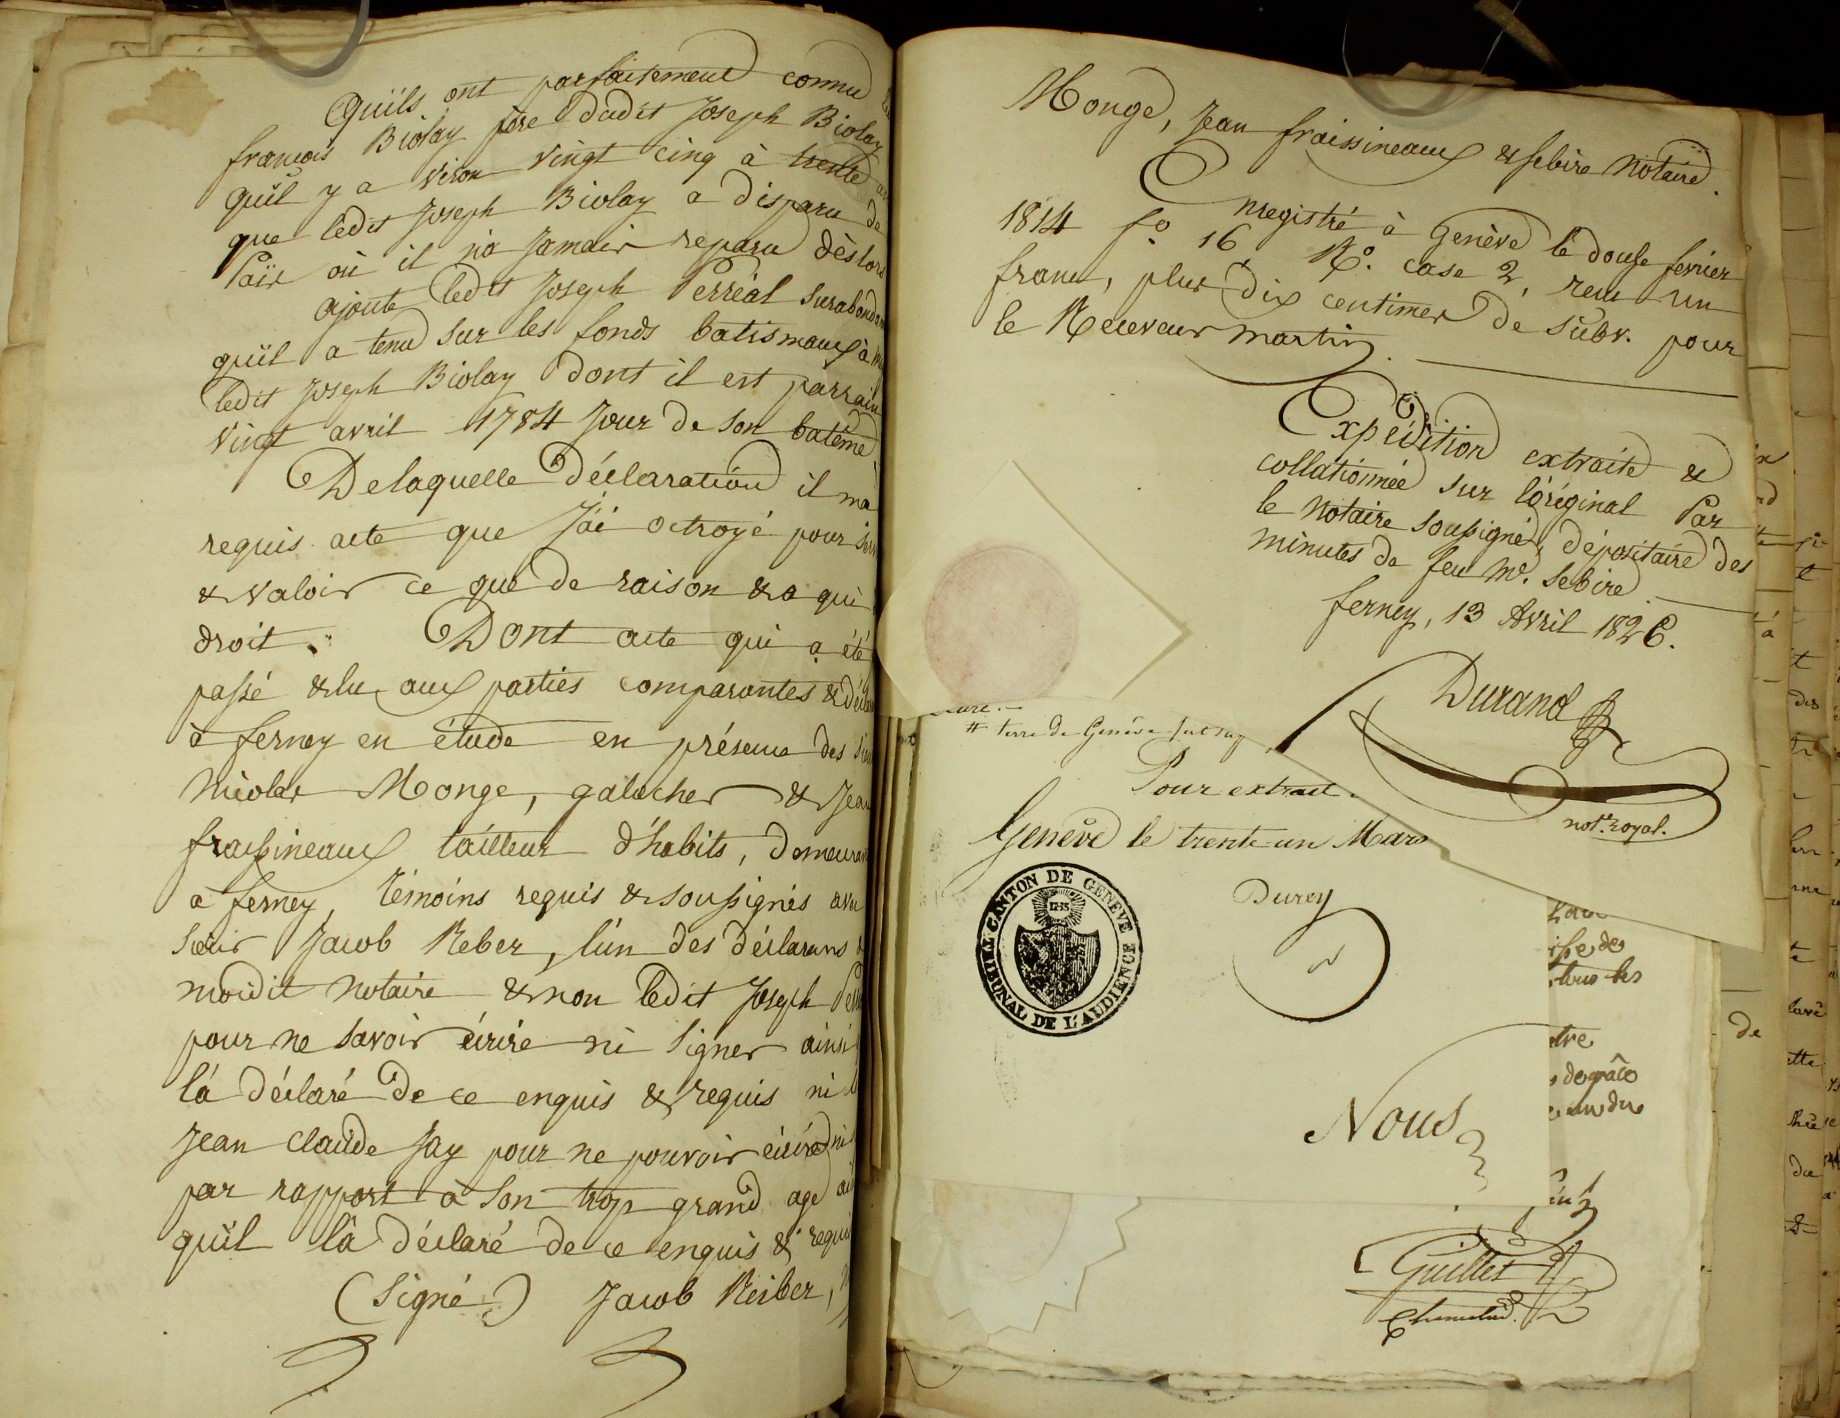 Qu'ils ont parfaitement connu
françois Biolay père dudit Joseph Biolay
qu'il y a viron vingt cinq à trente
que ledit Joseph Biolay a disparu de
Païs où il n'a Jamais reparu dèslors
ajoute ledit Joseph Perréal
qu'il a tenu sur les fonds batismaux à
ledit Joseph Biolay dont il est parrain
vingt avril 1784 Jour de son batême
Delaquelle déclaration il m'a
requis acte que J'ai octroyé pour
& valoir ce que de raison & a qui
droit. Dont acte qui a été
passé & lu aux parties comparantes &
à ferney en étude en présence des
Nicolas Monge, galocher & Jean
fraissineaux tailleur d'habits, demeurant
à ferney, témoins requis & soussignés avec
Jacob Reber, l'un des déclarans
moidit Notaire & non ledit Joseph
pour ne savoir écrire ni signer ainsi
l'a déclaré de ce enquis & requis ni
Jean Claude Jay pour ne pouvoir écrire ni
par rapport à son trop grand age
qu'il l'a déclaré de ce enquis & requis
(Signé) Jacob Reiber,
Monge, Jean fraissineaux & sebire Notaire.
Enregistré à Genève le douse fevrier
1814 f.º 16 R.º case 2, reçu un
franc, plus dix centimes de subv. pour
le Receveur Martin.
Expédition extraite &
collationnée sur l'original Par
le Notaire soussigné, dépositaire des
minutes de feu M.e Sebire
ferney, 13 Avril 1826.
Durand
not.re royal.
# terre de Genève
Pour extrait.
Genève le trente un Mars
Durey
TRIBUNAL DE L'AUDIENCE
CANTON DE GENÈVE
Nous
tous les
de grâce
de
Guillet